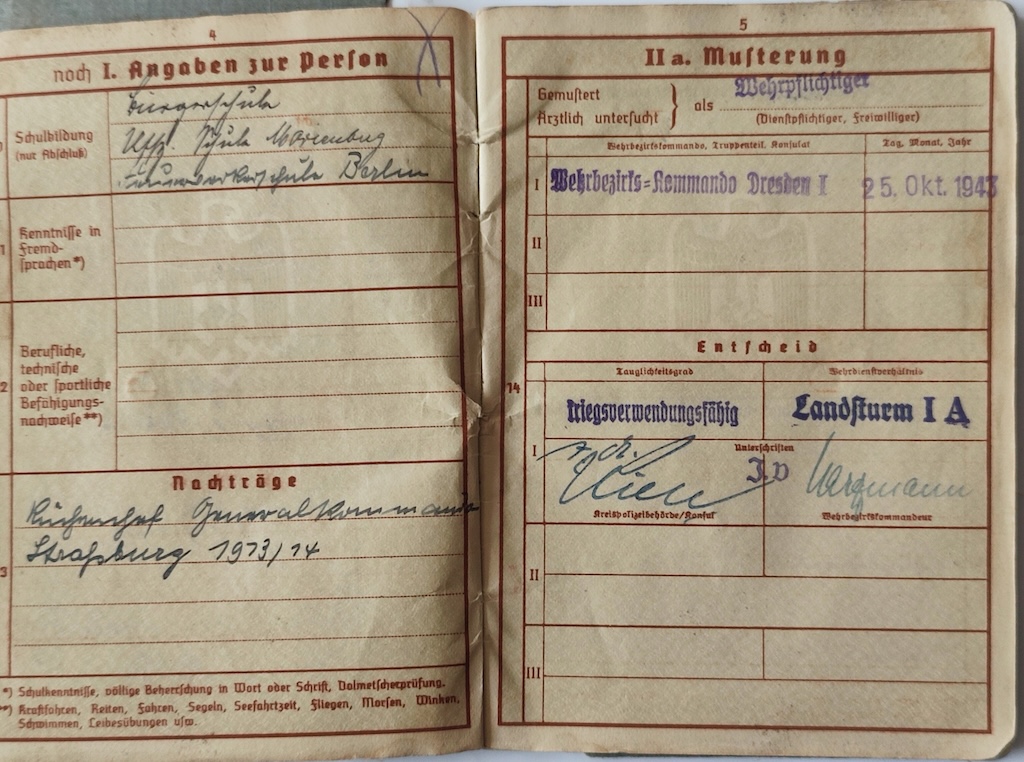 4
noch I. Angaben zur Person
Schulbildung
(nur Abschluß)
Bürgerschule
Uffz. Schule Marienburg
Berlin
1
Kenntnisse in
Fremd-
sprachen*)
2
Berufliche,
technische
oder sportliche
Befähigungs-
nachweise**)
Nachträge
3
Küchenchef Generalkommando
Straßburg 1913/14
*) Schulkenntnisse, völlige Beherrschung in Wort oder Schrift, Dolmetscherprüfung.
**) Kraftfahren, Reiten, Fahren, Segeln, Seefahrtzeit, Fliegen, Morsen, Winken,
Schwimmen, Leibesübungen usw.
5
II a. Musterung
Gemustert
Ärztlich untersucht
als
Wehrpflichtiger
(Dienstpflichtiger, Freiwilliger)
Wehrbezirkskommando, Truppenteil, Konsulat
Tag, Monat, Jahr
I
Wehrbezirks=Kommando Dresden I
25. Okt. 1943
II
III
Entscheid
14
Tauglichkeitsgrad
Wehrdienstverhältnis
I
kriegsverwendungsfähig
Landsturm I A
Unterschriften
J.V
Kreispolizeibehörde/Konsul
Wehrbezirkskommandeur
II
III